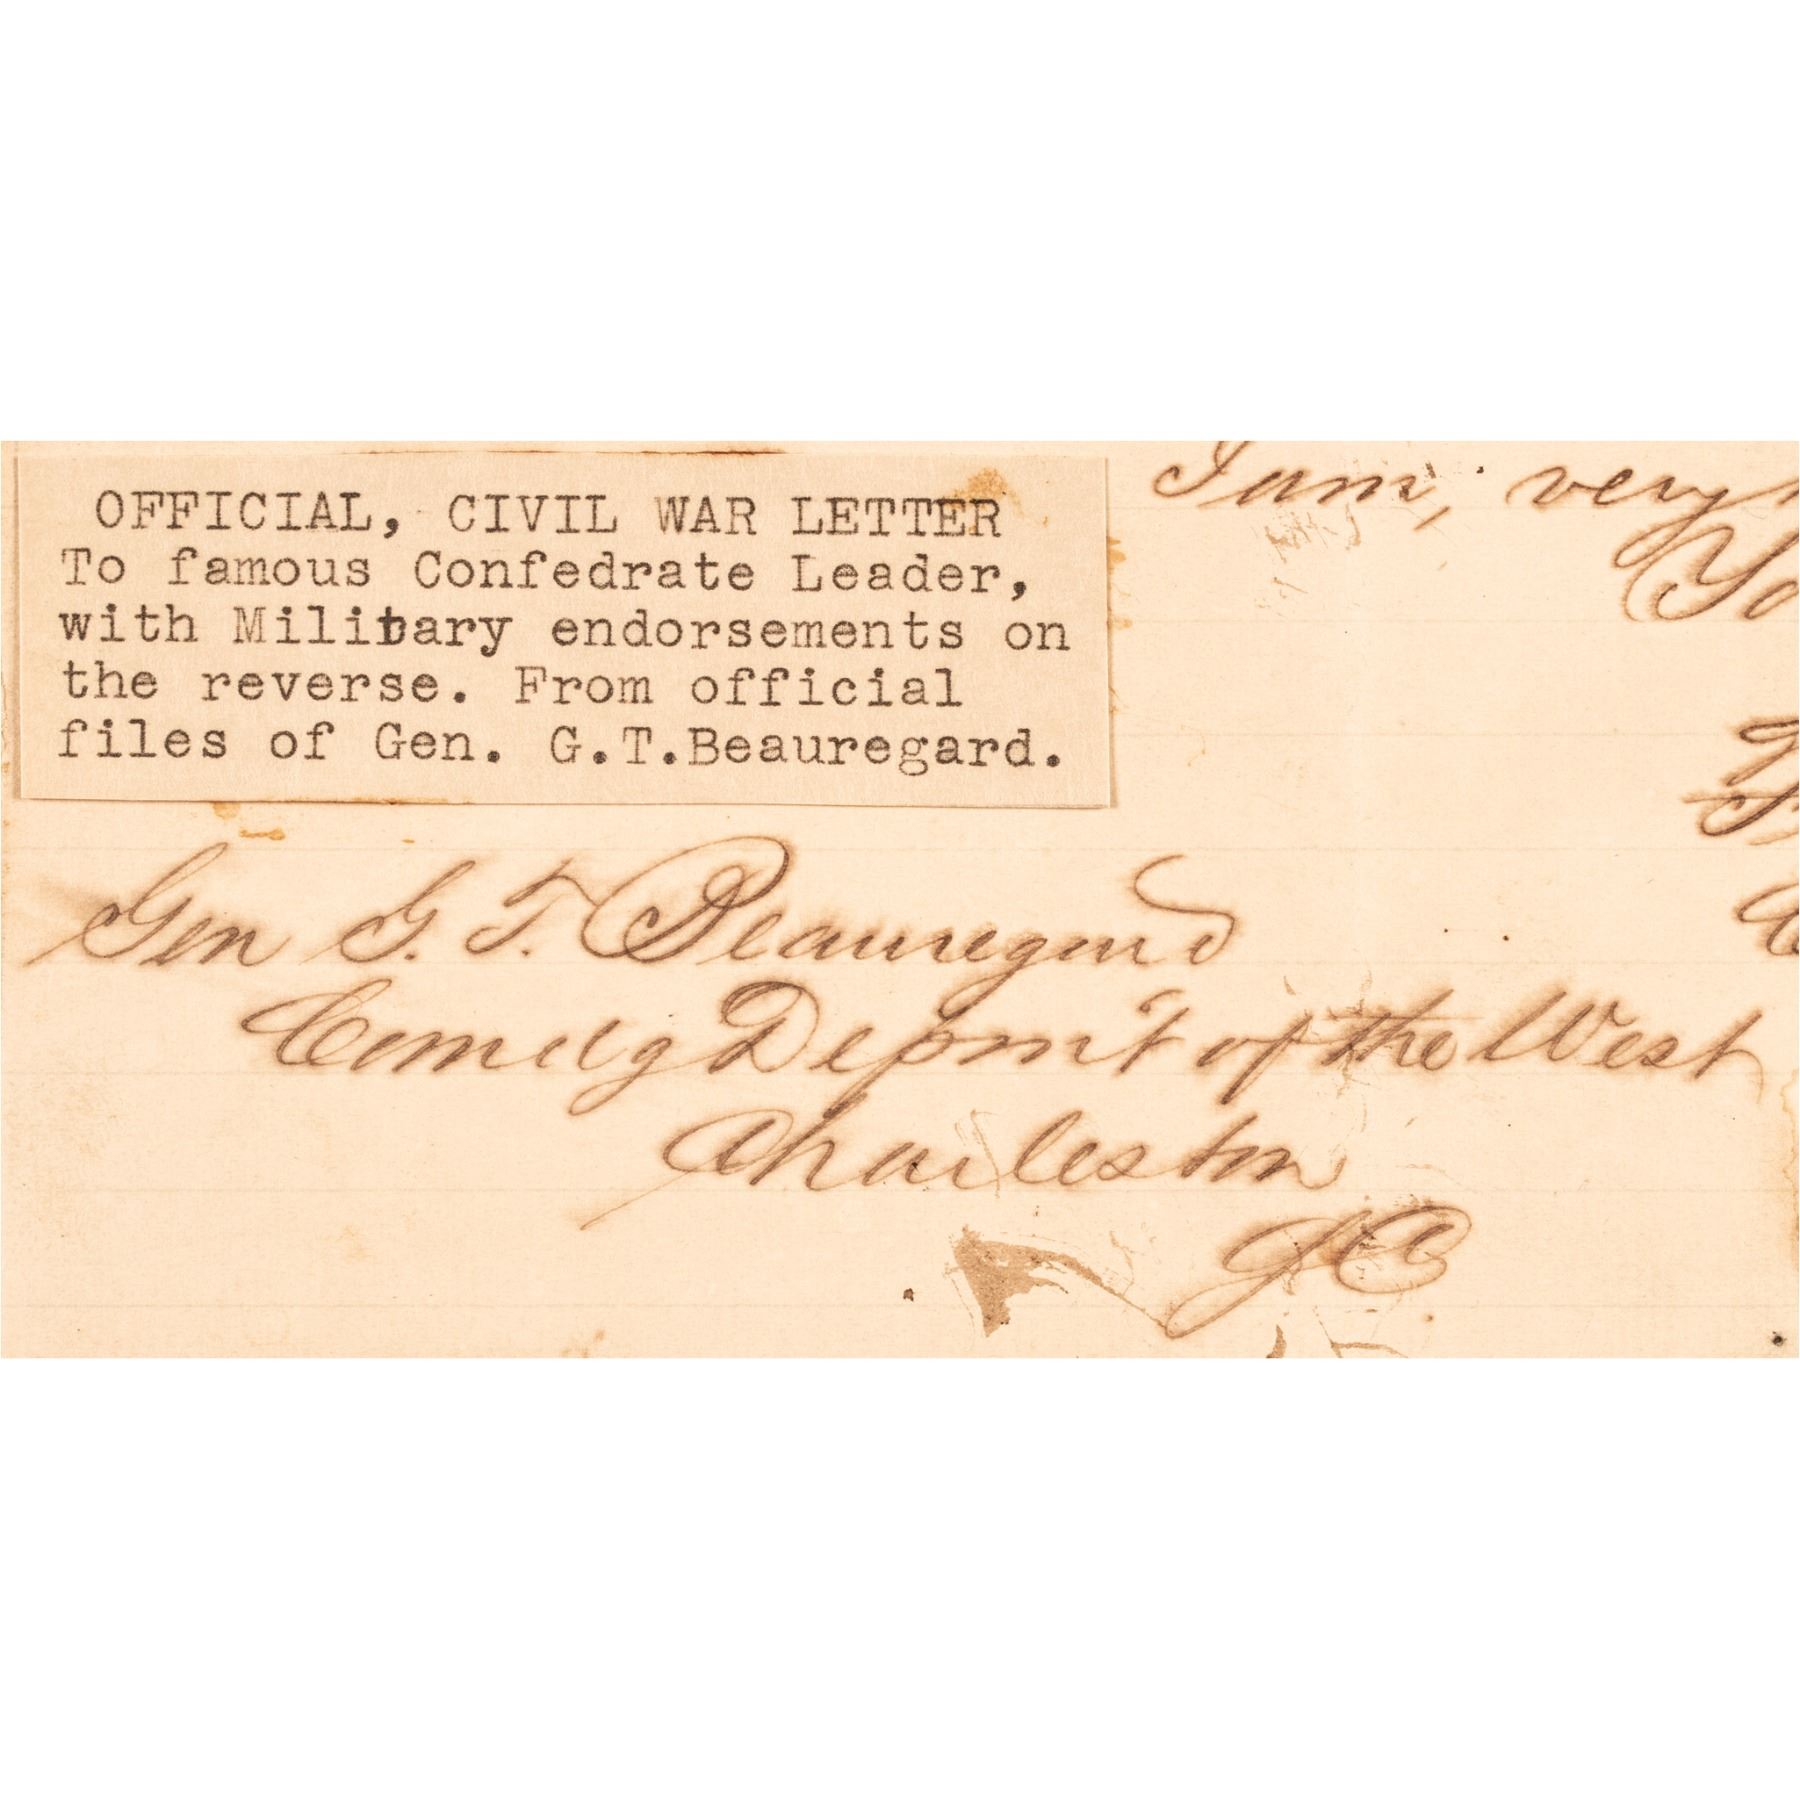 OFFICIAL, CIVIL WAR LETTER
To famous Confedrate Leader,
with Military endorsements on
the reverse. From official
files of Gen. G.T.Beauregard.
I am, very
Yo
Gen G. T. Beauregard
Comdg Depm't of the West
Charleston
SC